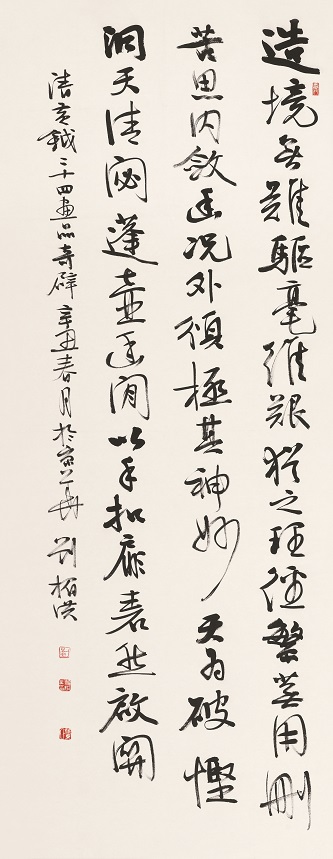 造境無難驅毫維艱犹之理徑繁蕪用刪
苦思内斂幽况外頒極其神妙天為破慳
洞天清閟蓬壺幽閒以手扣扉砉然啟關
清黄鉞二十四畫品奇辟辛丑春月於劉柏洪